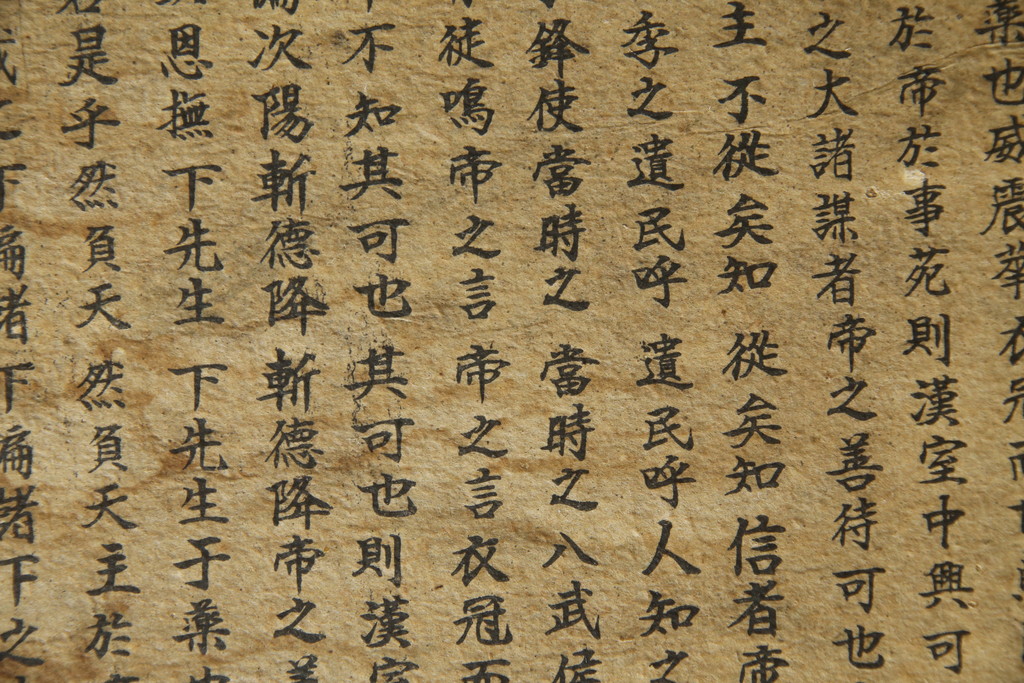 藥也威震華衣冠而
於帝於事苑則漢室中興可
之大諸謀者帝之善待可也
主不從矣知從矣知信者帝
季之遺民呼遺民呼人知之
鋒使當時之當時之八武侯
徒鳴帝之言帝之言衣冠而
不知其可也其可也則漢室
次陽斬德降斬德降帝之善
恩撫下先生下先生于藥也
是乎然負天然負天主於
下偏諸下偏諸下之